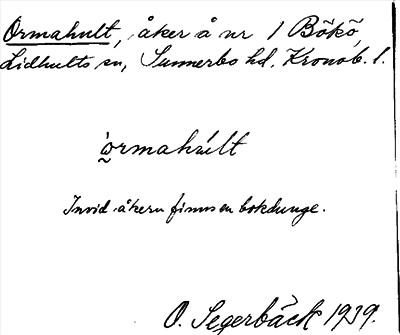 Ormahult, åker å nr 1 Bökö,
Lidhults sn, Sunnerbo hd. Kronob. l.
òrmahúlt
Invid åkern finns en bokdunge.
O. Segerbäck 1939.